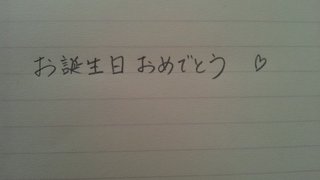 お誕生日 おめでとう ♡